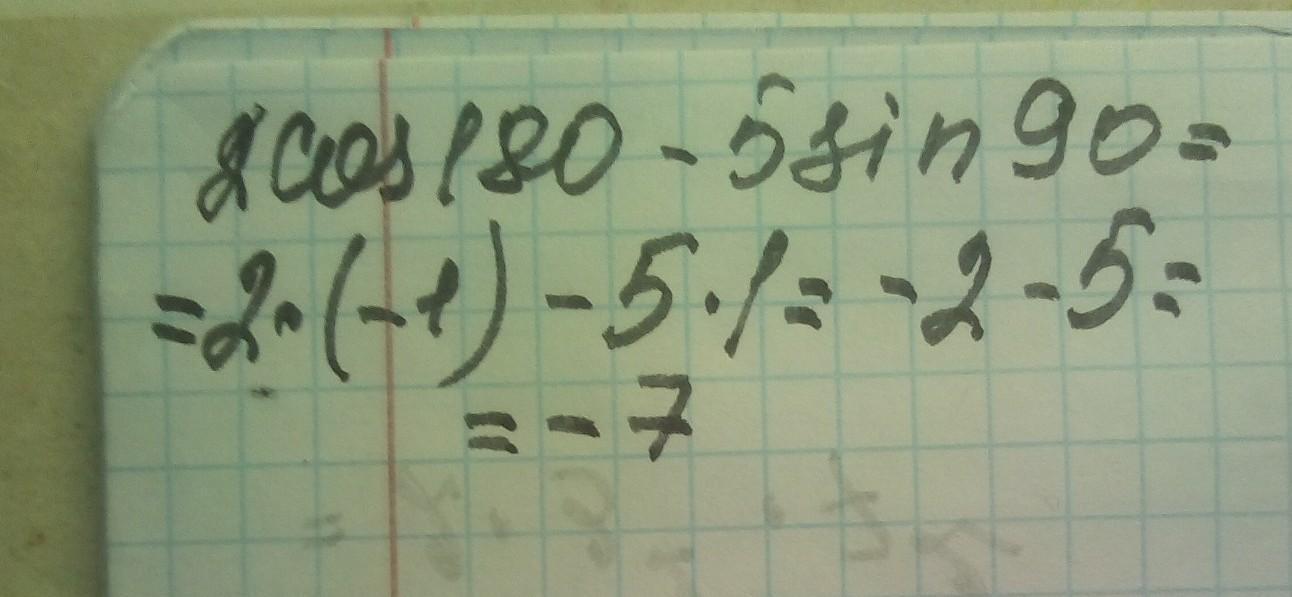 2cos180 - 5sin90 =
= 2 · (-1) - 5 · 1 = -2 - 5 =
= -7